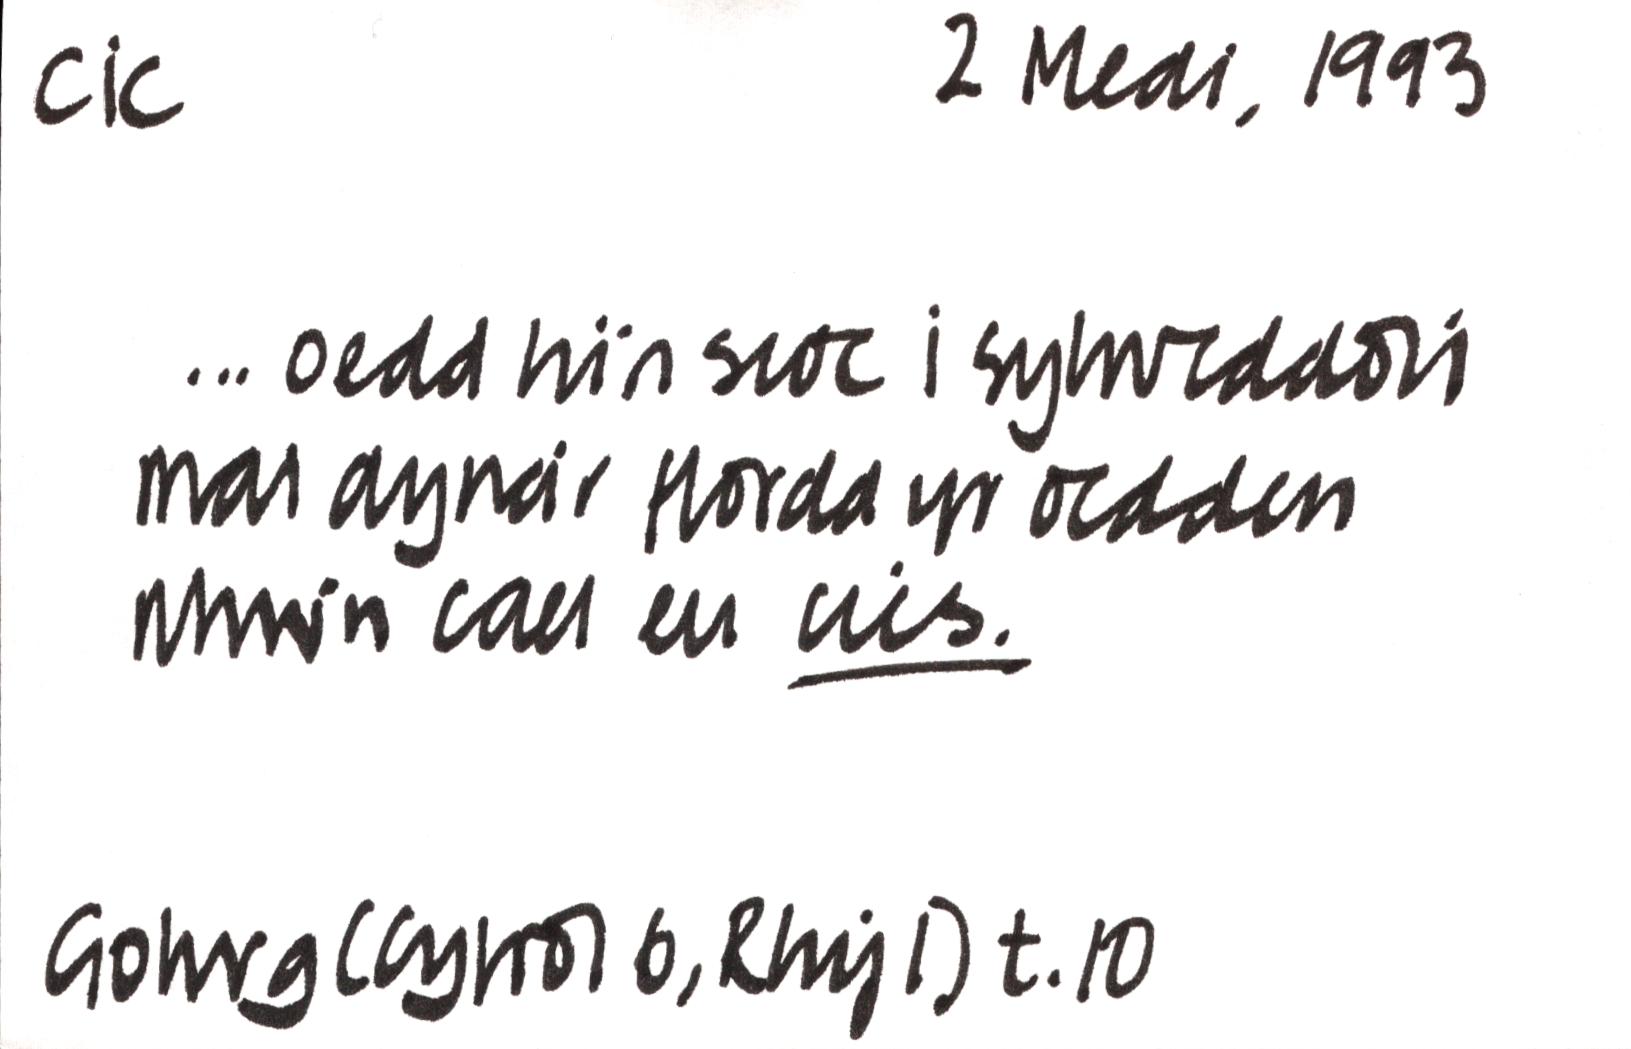 cic 2 Medi, 1993
... oedd hi'n sioc i sylweddoli
mai dyna'r ffordd yr oedden
nhw'n cael eu cics.
Golwg (Cyfrol 6, Rhif 1) t.10